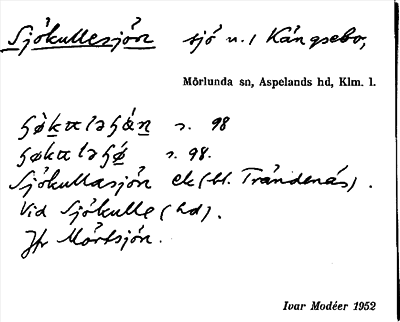 Sjökullesjön sjö n. / Kängsebo,
Mörlunda sn, Aspelands hd, Klm. l.
s. 98
s. 98.
Sjökullasjön ek (bl. Trändenäs).
Vid Sjökulle (hd).
Jfr Mörtsjön.
Ivar Modéer 1952